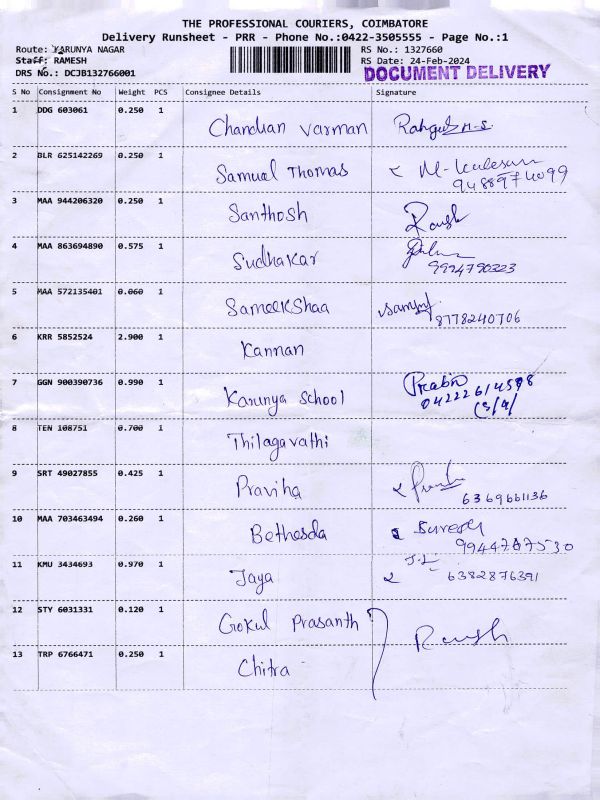 THE PROFESSIONAL COURIERS, COIMBATORE
Delivery Runsheet - PRR - Phone No.:0422-3505555 - Page No.:1
Route: KARUNYA NAGAR RS No.: 1327660
Staff: RAMESH RS Date: 24-Feb-2024
DRS No.: DCJB132766001 DOCUMENT DELIVERY
S No Consignment No Weight PCS Consignee Details Signature
1 DDG 603061 0.250 1 Chandian varman
2 BLR 625142269 0.250 1 Samuel Thomas
9488974099
3 MAA 944206320 0.250 1 Santhosh
4 MAA 863694890 0.575 1 Sudhakar
9994790323
5 MAA 572135401 0.060 1 SameekShaa
8778240706
6 KRR 5852524 2.900 1 Kannan
7 GGN 900390736 0.990 1 Karunya School Prabin
8 TEN 108751 0.700 1 Thilagavathi
9 SRT 49027855 0.425 1 Praviha
6369661136
10 MAA 703463494 0.260 1 Bethesda Suresh
9944767530
11 KMU 3434693 0.970 1 Jaya J.L
6382876391
12 STY 6031331 0.120 1 Gokul Prasanth
13 TRP 6766471 0.250 1 Chitra